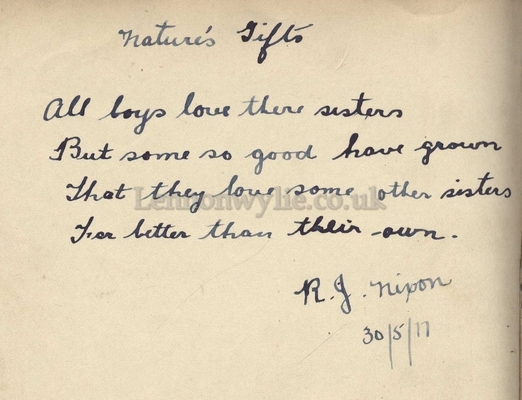 Nature's Gifts
All boys love there sisters
But some so good have grown
That they love some other sisters
Lennonwylie.co.uk
Far better than their own.
R. J. Nixon
30/5/17